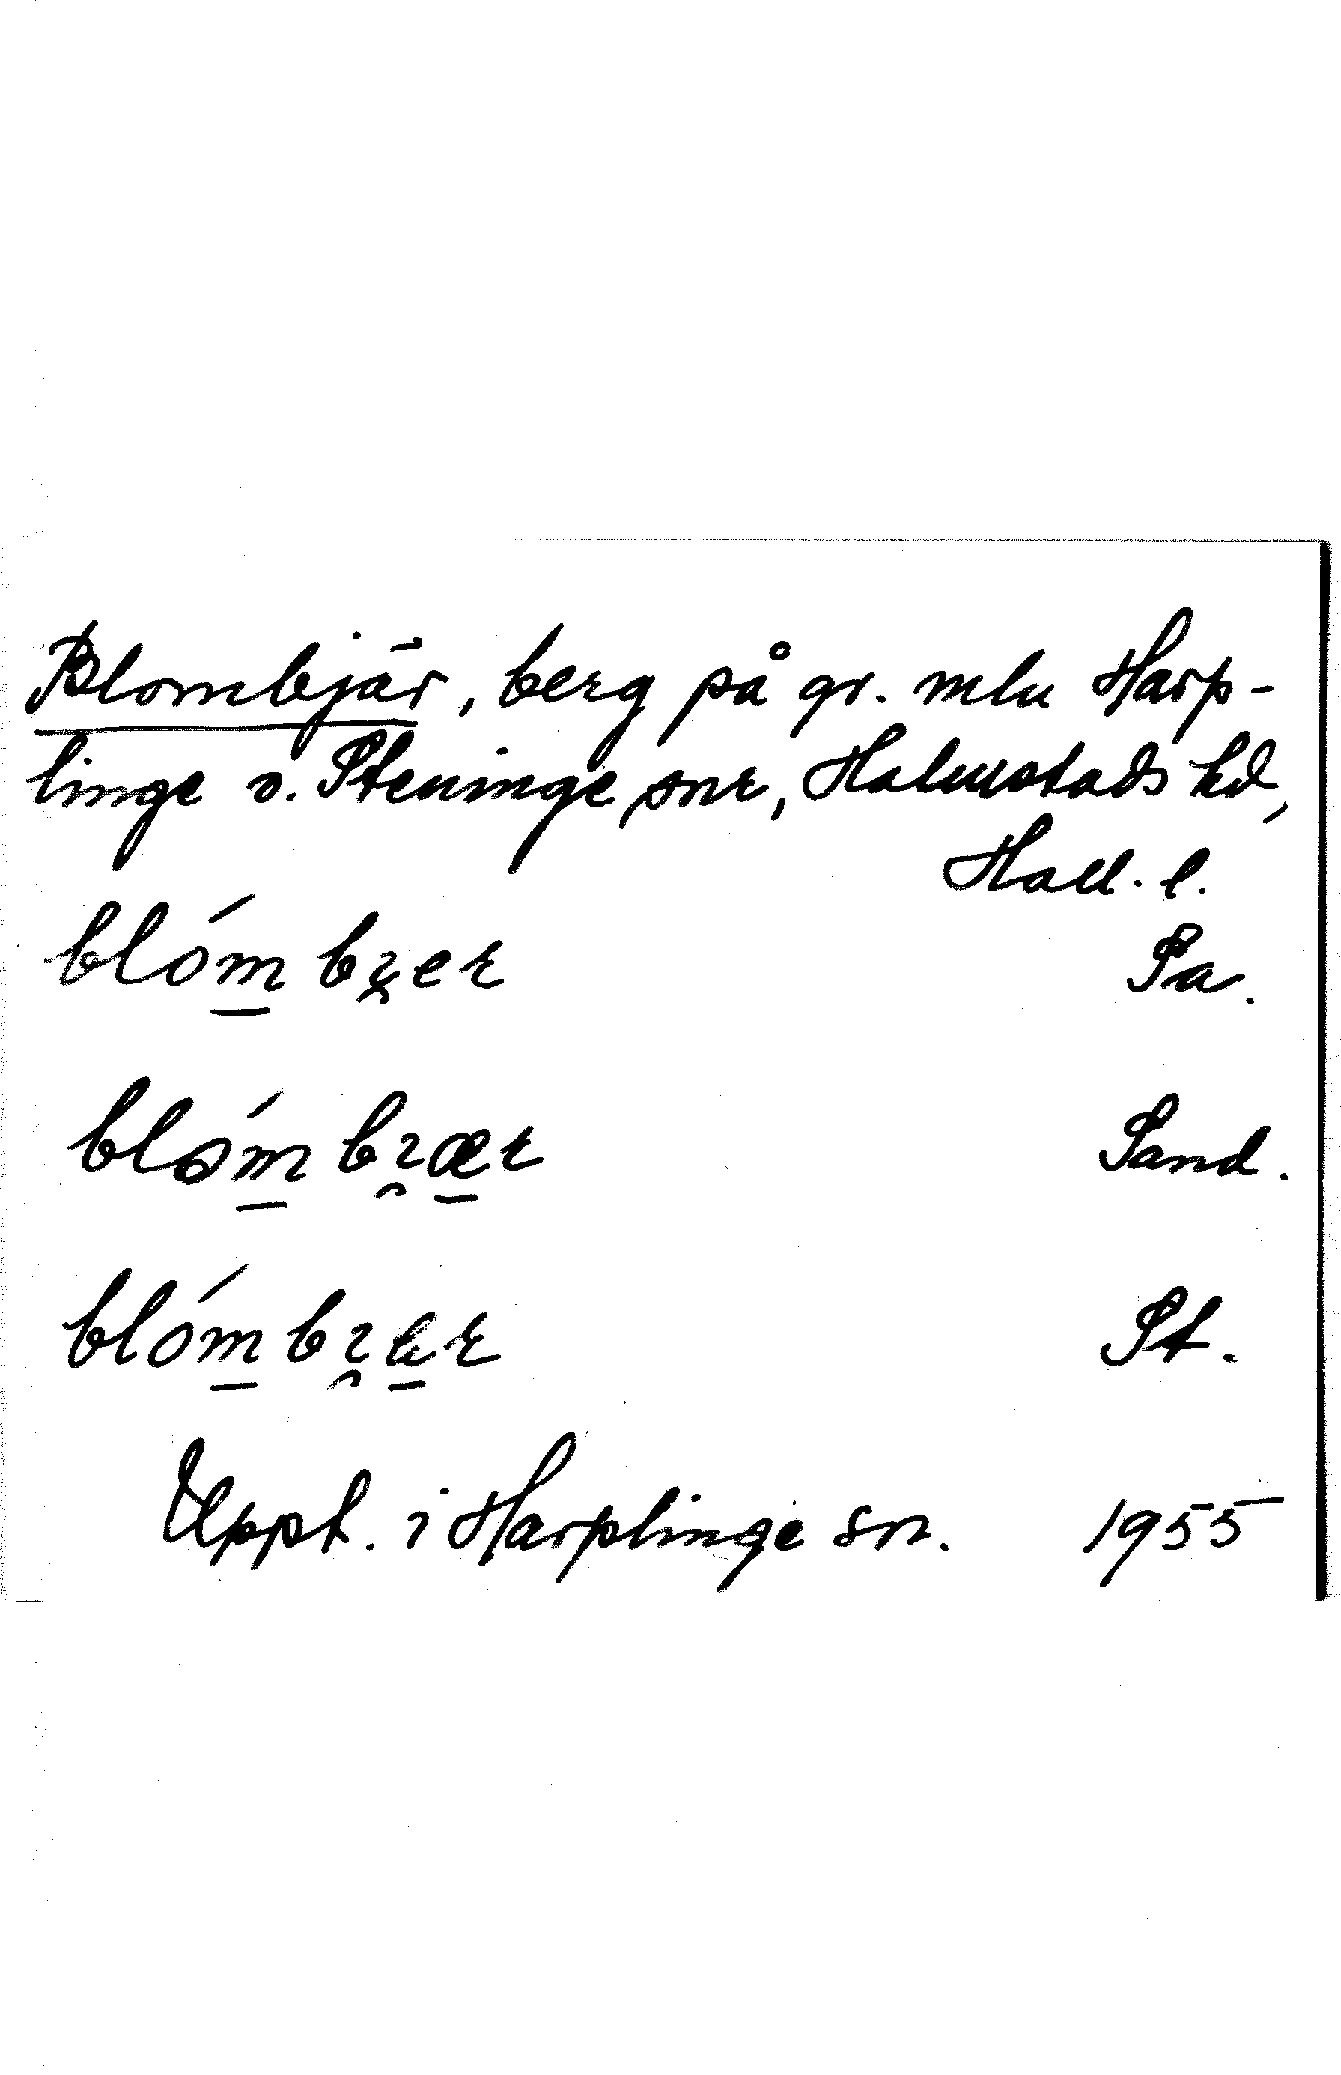 Blombjär, berg på gr. mlu Harp-
linge o. Steninge snr, Halmstads hd,
Hall. l.
blóm bı̯er Pa.
blóm bı̯ær Sand.
blóm bı̯ r St.
Uppt. i Harplinge sn. 1955